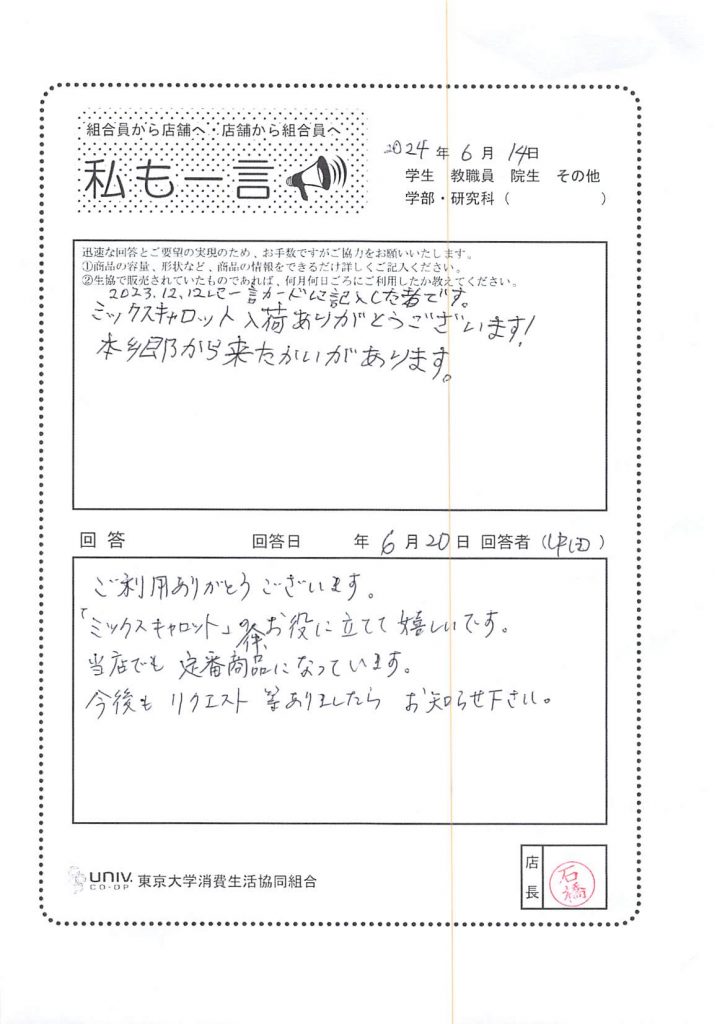 組合員から店舗へ・店舗から組合員へ
私も一言
2024年6月14日
学生 教職員 院生 その他
学部・研究科( )
迅速な回答とご要望の実現のため、お手数ですがご協力をお願いいたします。
①商品の容量、形状など、商品の情報をできるだけ詳しくご記入ください。
②生協で販売されていたものであれば、何月何日ごろにご利用したか教えてください。
2023.12.12に一言カードに記入した者です。
ミックスキャロット入荷ありがとうございます!
本郷から来たかいがあります。
回答 回答日 年6月20日 回答者()
ご利用ありがとうございます。
「ミックスキャロット」の件、お役に立てて嬉しいです。
当店でも定番商品になっています。
今後もリクエスト等ありましたらお知らせ下さい。
UNIV.
CO-OP
東京大学消費生活協同組合
店長
石橋